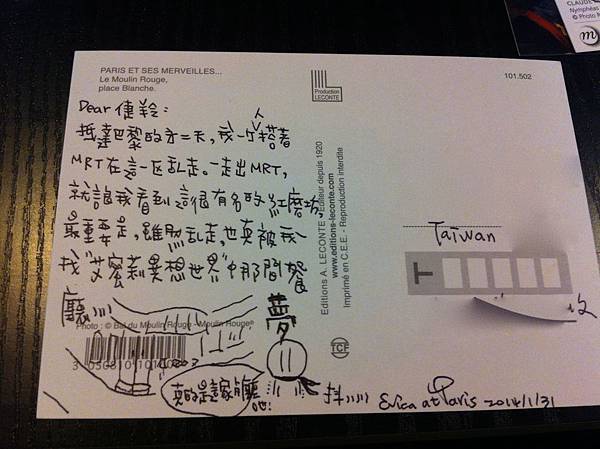 CLAUDE
Nymphéas
© Photo R
m
PARIS ET SES MERVEILLES...
Le Moulin Rouge,
place Blanche.
Production
LECONTE
101.502
Dear 倢羚：
抵達巴黎的第二天，我一个人搭着
MRT在這一区乱走。一走出MRT，
就讓我看到這很有名的紅磨坊。
最重要是，雖然乱走，也真被我
找"艾蜜莉異想世界"中那間餐
廳
Photo : © Bal du Moulin Rouge - Moulin Rouge®
Editions A. LECONTE - Editeur depuis 1920
www.editions-leconte.com
Imprimé en C.E.E. - Reproduction interdite
TCF
Taiwan
T
收
夢
真的是這家餐廳
吧!
抖
Erica at Paris 2014/1/31